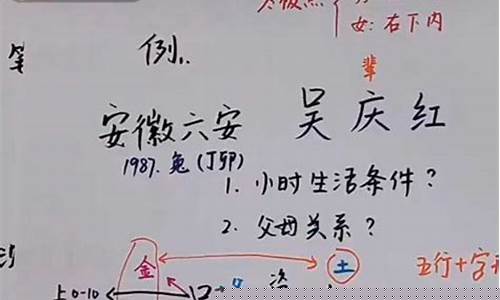 女:右下内
例:.
辈
安徽六安 吴庆红
1987. 兔(丁卯)
1. 小时生活条件?
2. 父母关系?
金 土 五行+字
上0-10